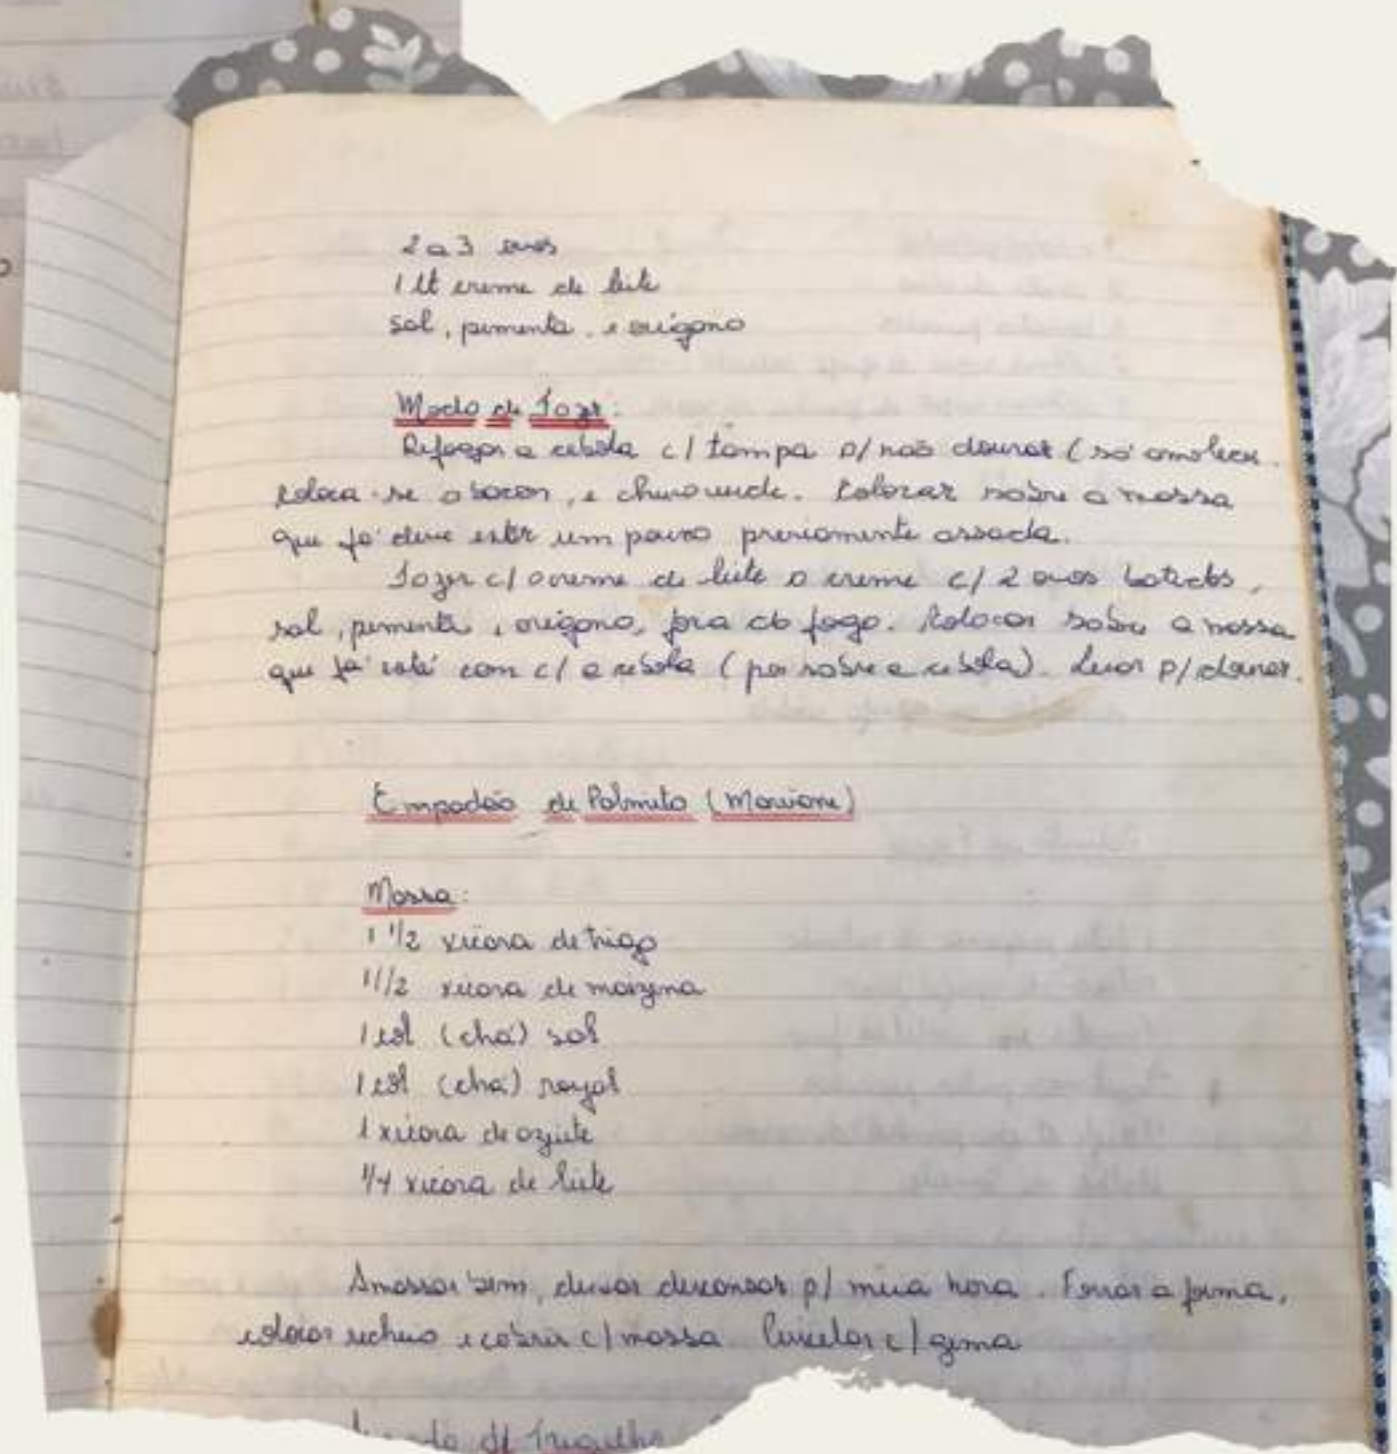 2 a 3 ovos
1 lt creme de leite
sal, pimenta, e orégano
Modo de Fazer:
Refogar a cebola c/ tampa p/ não dourar (só amolecer.
Coloca-se o bacon, e churo. Colocar sobre a massa
que já deve estar um pouco previamente assada.
Fazer c/ o creme de leite o creme c/ 2 ovos batidos,
sal, pimenta, orégano, fora do fogo. Colocar sobre a massa
que já está com c/ a cebola (por sobre a cebola). Levar p/ dourar.
Empadão de Palmito (Marione)
Massa:
1 1/2 xícara de trigo
1 1/2 xícara de maizena
1 col (chá) sal
1 col (chá) royal
1 xícara de azeite
1/4 xícara de leite
Amassar bem, deixar descansar p/ meia hora. Forrar a forma,
colocar recheio e cobrir c/ massa. Pincelar c/ gema
de Triguilho